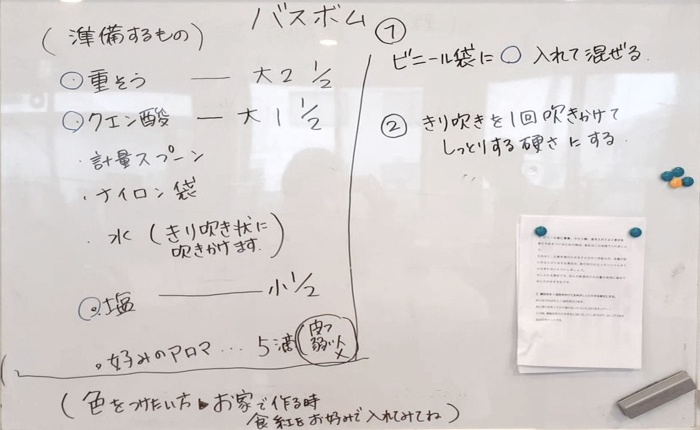 バスボム
(準備するもの)
○重そう ― 大2 1/2
○クエン酸 ― 大1 1/2
・計量スプーン
・ナイロン袋
・水 (きり吹き状に
吹きかけます.)
○塩 ― 小1/2
・好みのアロマ … 5滴
皮フ
弱い人
×
(色をつけたい方 お家で作る時
食紅をお好みで入れてみてね)
①
ビニール袋に○入れて混ぜる.
② きり吹きを1回吹きかけて
しっとりする硬さにする.